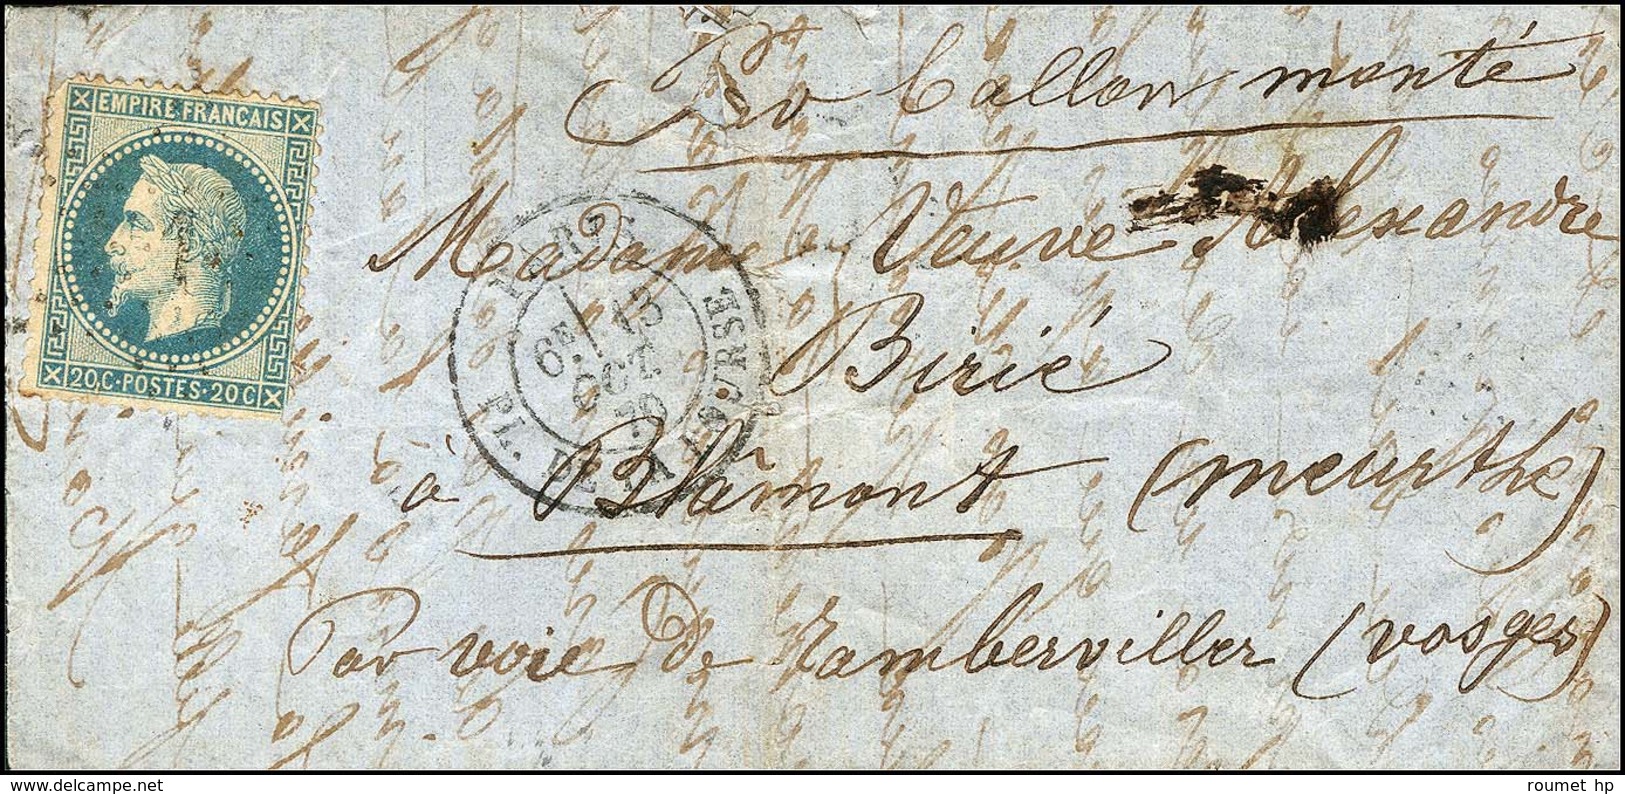 Par ballon monté
EMPIRE FRANCAIS
20.C·POSTES·20C
PARIS
6E 13
OCT.
70
PL. DE LA BOURSE
Madame Veuve Alexandre
Birié
à Blâmont (meurthe)
Par voie de Ramberviller (vosges)
www.delcampe.net
roumet hp